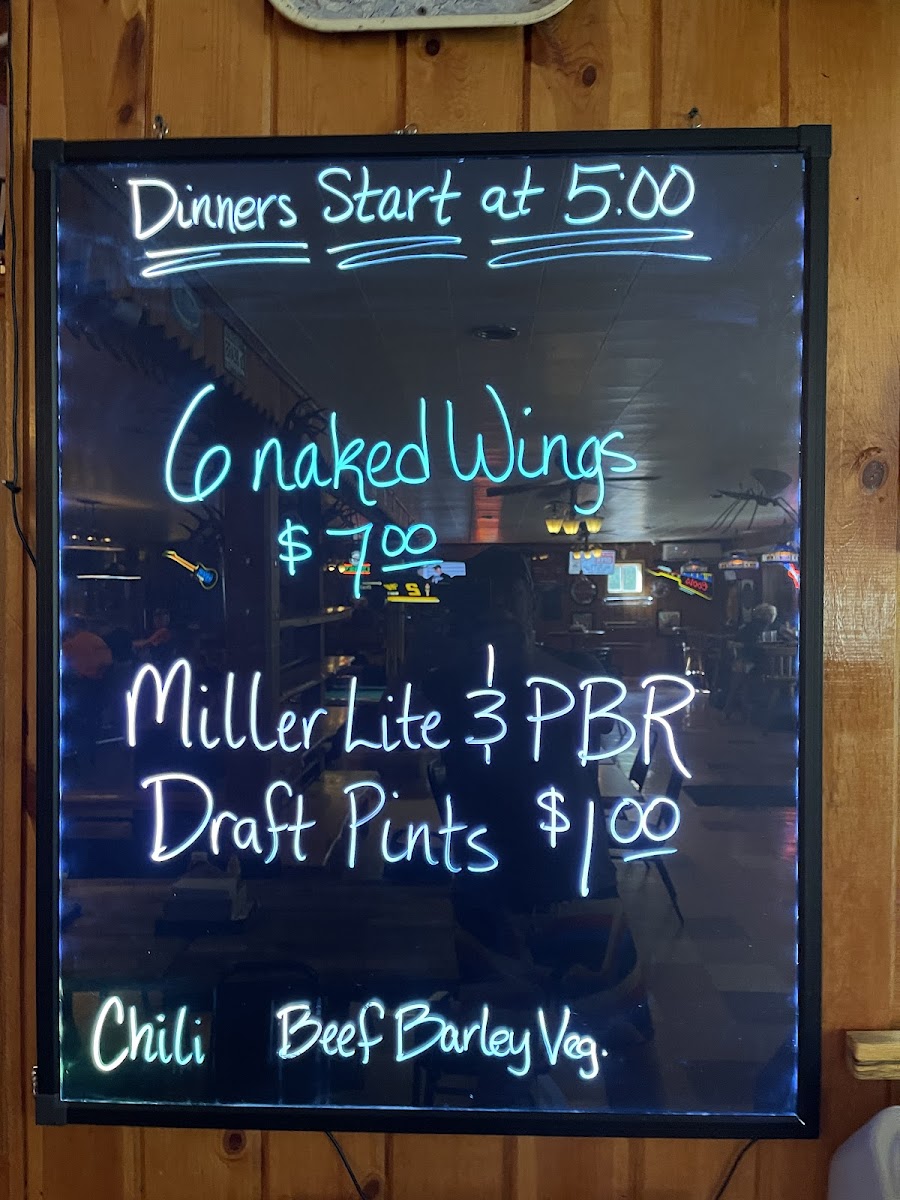 Dinners Start at 5:00
6 naked Wings
$7.00
Miller Lite & PBR
Draft Pints $1.00
Chili Beef Barley Veg.